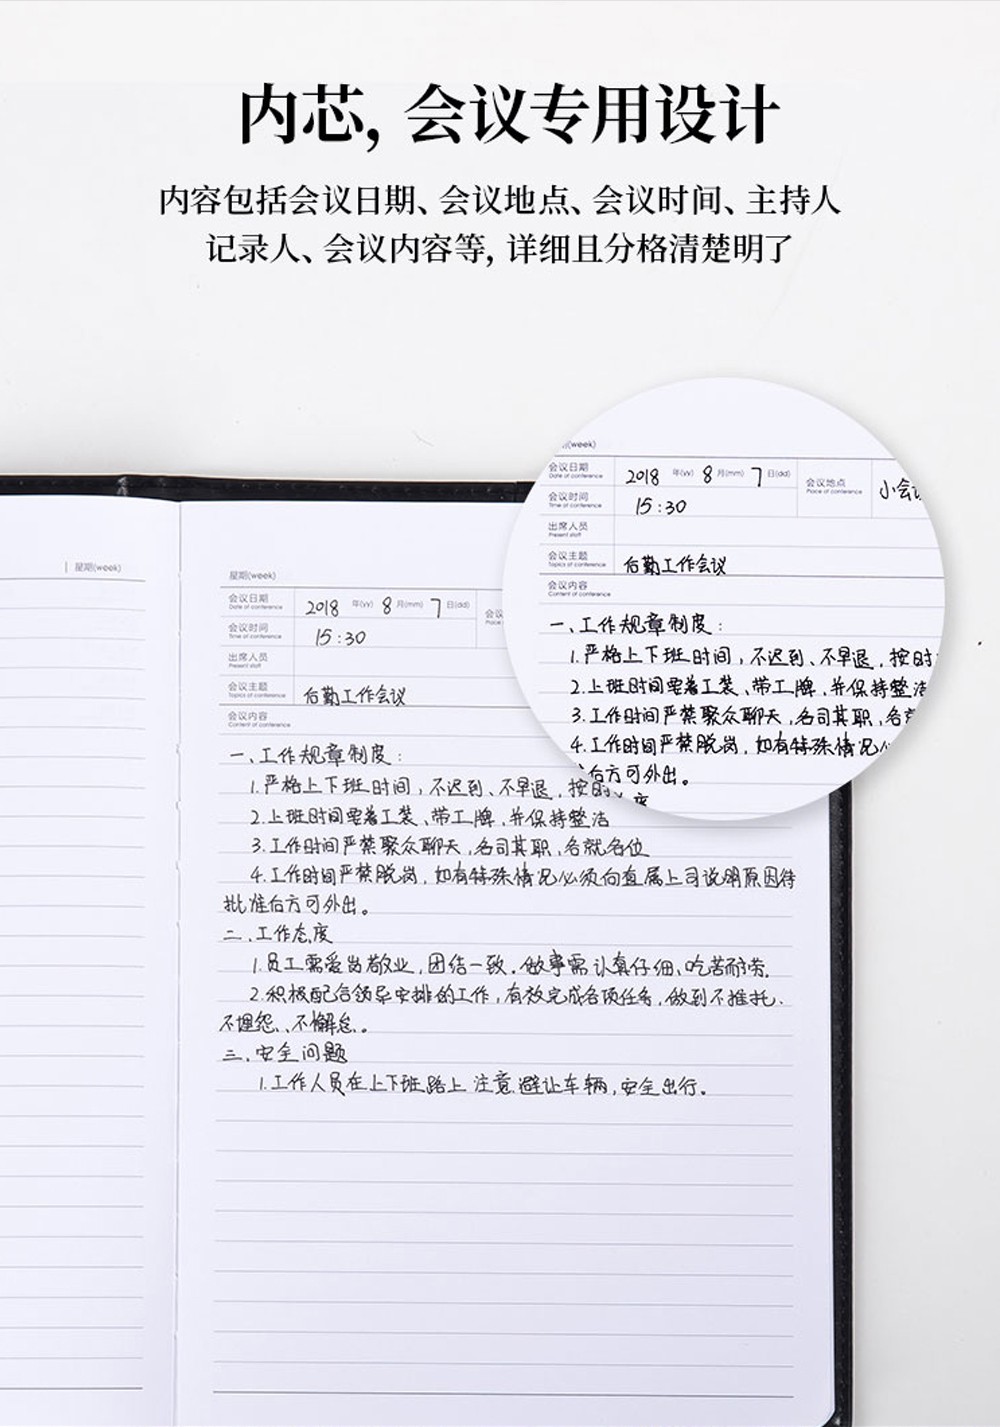 内芯, 会议专用设计
内容包括会议日期、会议地点、会议时间、主持人
记录人、会议内容等, 详细且分格清楚明了
(week)
会议日期 2018 年(yy) 8 月(mm) 7 日(dd) 会议地点 小会
Date of conference Place of conference
会议时间 15:30
Time of conference
出席人员
Present staff
会议主题 后勤工作会议
Topics of conference
会议内容
Content of conference
一、工作规章制度:
1.严格上下班时间,不迟到、不早退,按时
2.上班时间要着工装、带工牌,并保持整洁
3.工作时间严禁聚众聊天,各司其职,各就
4.工作时间严禁脱岗,如有特殊情况必
后方可外出。
度
星期(week)
星期(week)
会议日期 2018 年(yy) 8 月(mm) 7 日(dd) 会议
Date of conference
会议时间 15:30
Time of conference
出席人员
Present staff
会议主题 后勤工作会议
Topics of conference
会议内容
Content of conference
一、工作规章制度:
1.严格上下班时间,不迟到、不早退,按时
2.上班时间要着工装、带工牌,并保持整洁
3.工作时间严禁聚众聊天,各司其职,各就各位
4.工作时间严禁脱岗,如有特殊情况必须向直属上司说明原因待
批准后方可外出。
二、工作态度
1.员工需爱岗敬业,团结一致,做事需认真仔细、吃苦耐劳.
2.积极配合领导安排的工作,有效完成各项任务,做到不推托、
不埋怨、不懈怠。
三、安全问题
1.工作人员在上下班路上注意避让车辆,安全出行。